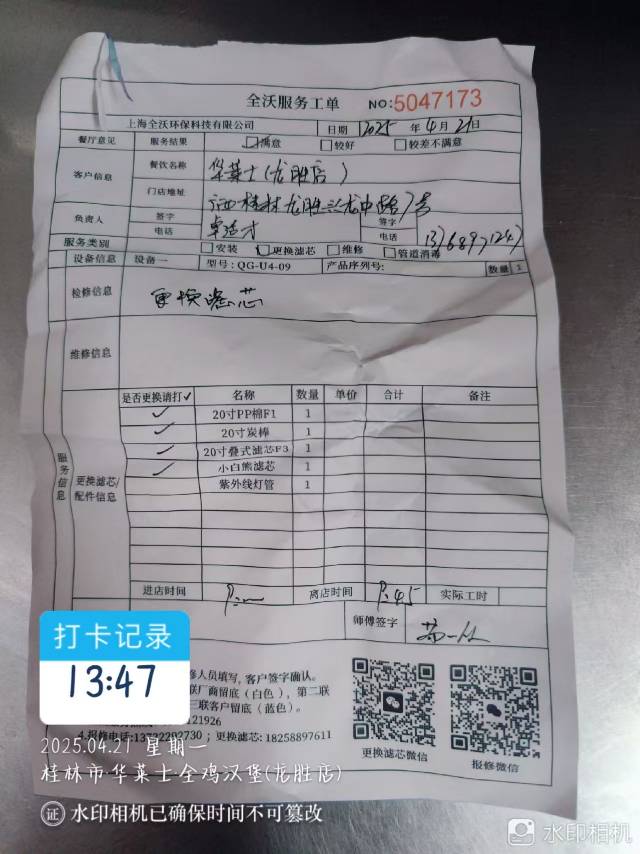 全沃服务工单 NO:5047173
上海全沃环保科技有限公司 日期 2025年4月21日
餐厅意见 服务结果 满意 较好 较差不满意
客户信息 餐饮名称 华莱士(龙胜店)
门店地址 广西桂林龙胜
负责人 签字 签字
电话 电话
服务类别 安装 更换滤芯 维修 管道消毒
设备信息 设备一 型号: QG-U4-09 产品序列号: 数量 1
检修信息 更换滤芯
维修信息
服务信息 更换滤芯/配件信息
是否更换请打✓ 名称 数量 单价 合计 备注
✓ 20寸PP棉F1 1
✓ 20寸炭棒 1
✓ 20寸叠式滤芯F3 1
✓ 小白熊滤芯 1
紫外线灯管 1
进店时间 离店时间 实际工时
师傅签字
修人员填写, 客户签字确认。
联厂商留底(白色), 第二联
三联客户留底(蓝色)。
121926
4.报修电话:13732292730; 更换滤芯: 18258897611
更换滤芯微信 报修微信
打卡记录
13:47
2025.04.21 星期一
桂林市·华莱士全鸡汉堡(龙胜店)
证 水印相机已确保时间不可篡改
水印相机